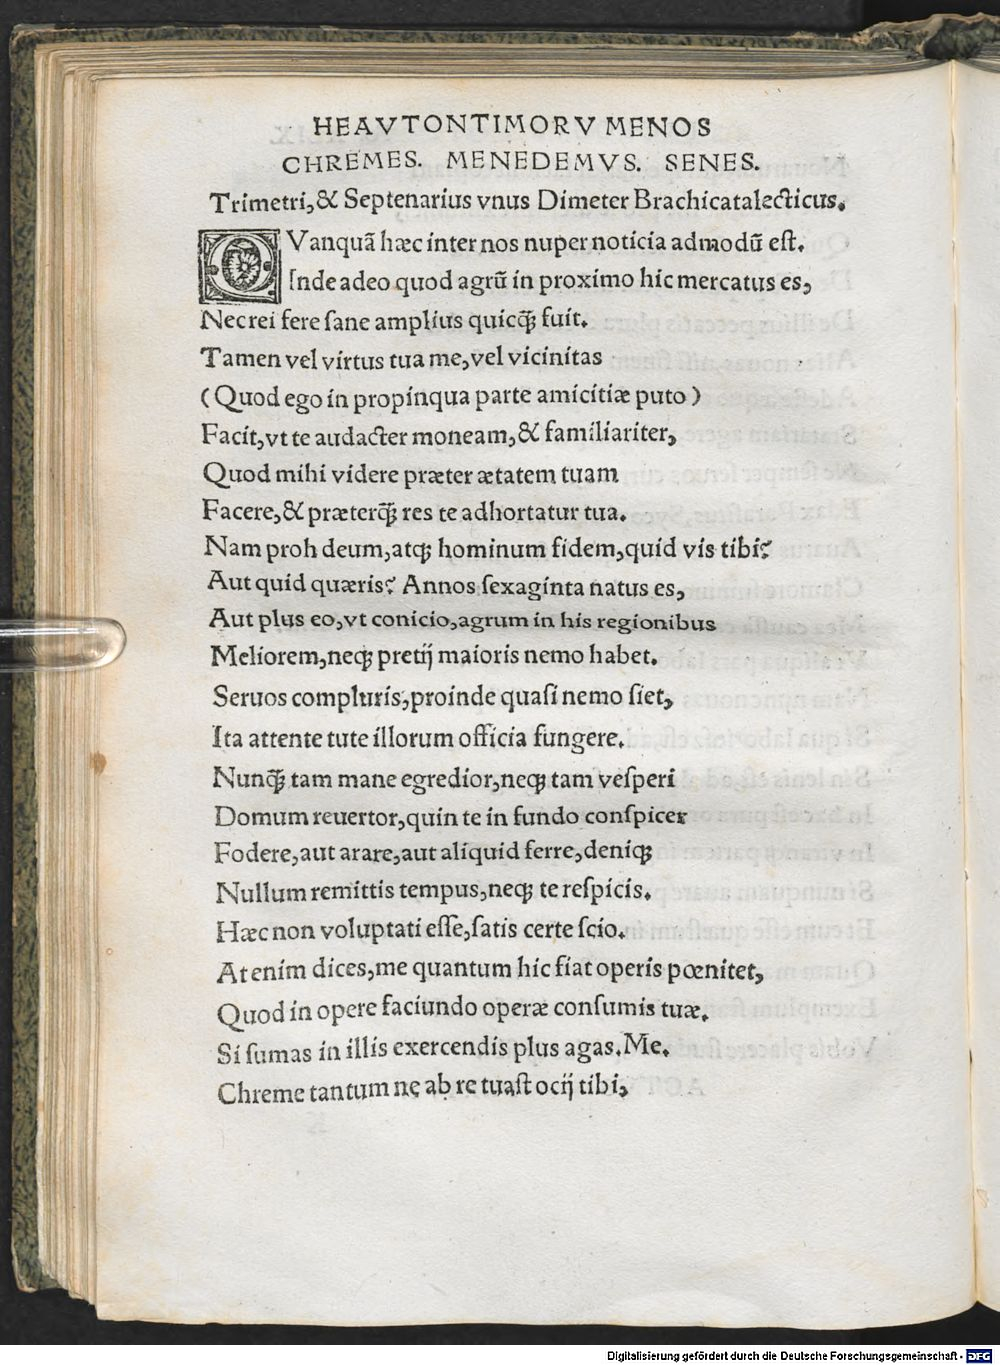 HEAVTONTIMORVMENOS
CHREMES. MENEDEMVS. SENES.
Trimetri,& Septenarius vnus Dimeter Brachicatalecticus.
QVanquã hæc inter nos nuper noticia admodũ est.
Inde adeo quod agrũ in proximo hic mercatus es,
Nec rei fere ſane amplius quicꝗ̃ fuit.
Tamen vel virtus tua me,vel vicinitas
(Quod ego in propinqua parte amicitiæ puto)
Facit,vt te audacter moneam,& familiariter,
Quod mihi videre præter ætatem tuam
Facere,& præterꝗ̃ res te adhortatur tua.
Nam proh deum,atq; hominum fidem,quid vis tibi?
Aut quid quæris? Annos ſexaginta natus es,
Aut plus eo,vt conicio,agrum in his regionibus
Meliorem,neq; pretij maioris nemo habet.
Seruos compluris,proinde quaſi nemo ſiet,
Ita attente tute illorum officia fungere.
Nunꝗ̃ tam mane egredior,neq; tam veſperi
Domum reuertor,quin te in fundo conſpicer
Fodere,aut arare,aut aliquid ferre,deniq;
Nullum remittis tempus,neq; te reſpicis.
Hæc non voluptati eſſe,ſatis certe ſcio.
At enim dices,me quantum hic fiat operis pœnitet,
Quod in opere faciundo operæ conſumis tuæ.
Si ſumas in illis exercendis plus agas.Me.
Chreme tantum ne ab re tuaſt ocij tibi,
Digitalisierung gefördert durch die Deutsche Forschungsgemeinschaft - DFG